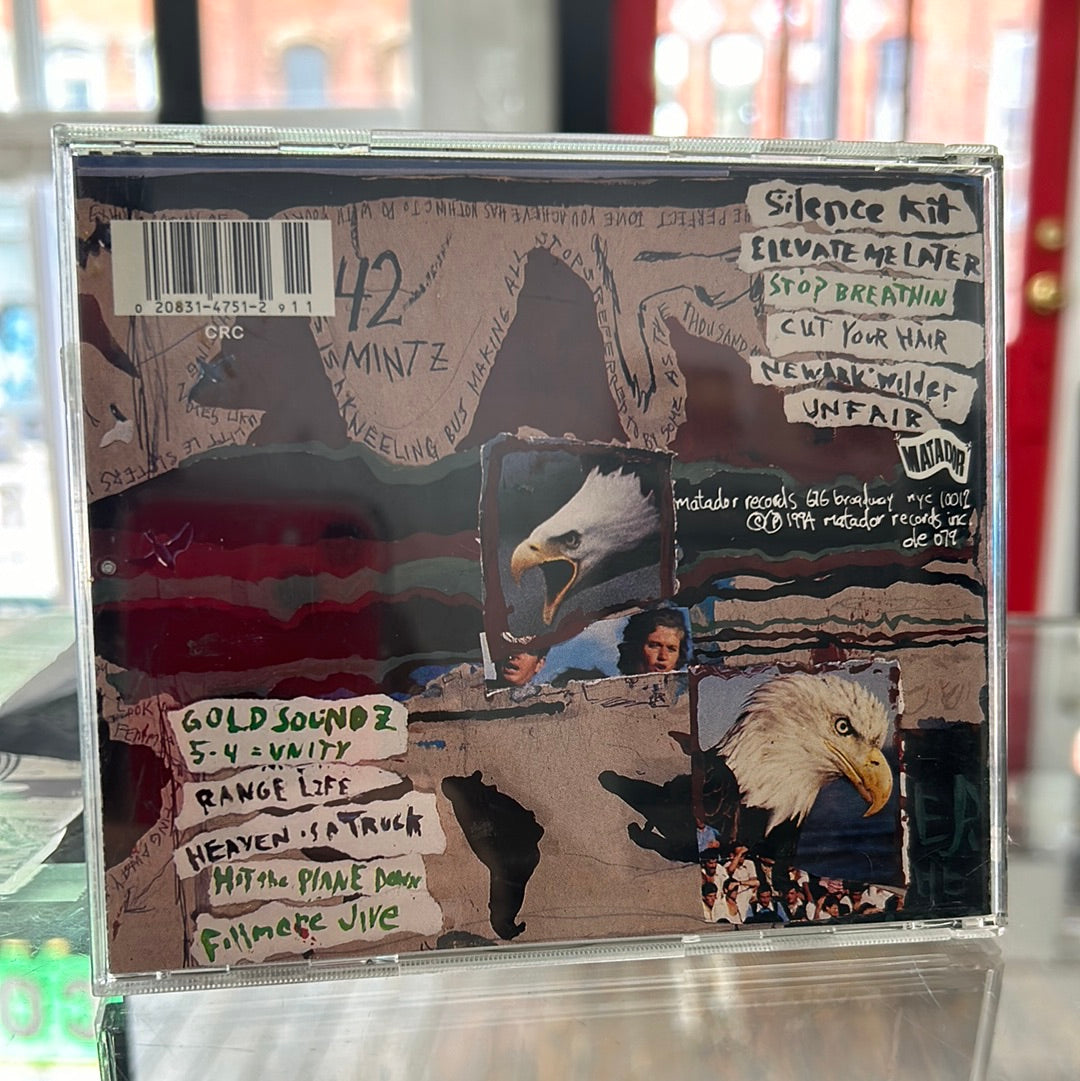 0 20831-4751-2 911
CRC
42
MINTZ
IS A KNEELING BUS MAKING ALL STOPS REFERRED TO BY SOME AS THE THOUSAND
THE PERFECT LOVE YOU ACHIEVE HAS NOTHING TO DO WITH
Silence Kit
ELEVATE ME LATER
STOP BREATHIN
CUT YOUR HAIR
NEWARK WILDER
UNFAIR
MATADOR
matador records 626 broadway nyc 10012
©℗ 1994 matador records inc.
ole 079
GOLD SOUNDZ
5-4 = UNITY
RANGE LIFE
HEAVEN IS A TRUCK
HIT the PLANE DOWN
Fillmore Jive